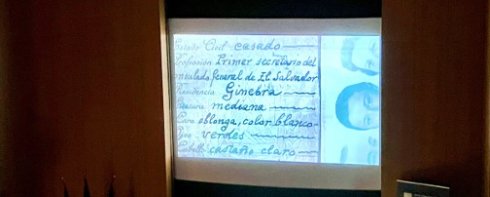 Estado Civil casado
Profesión Primer secretario del
onsulado General de El Salvador
Residencia Ginebra
Estatura mediana
Cara oblonga, color blanco
Ojos verdes
Cabello castaño claro